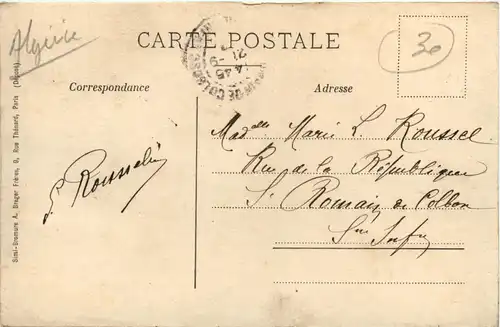 Algérie
CARTE POSTALE
30
Correspondance
Adresse
Madelle Marie L. Roussel
Rue de la République
St Romain de Colbosc
Sne Infre
Simi-Bromure A. Breger Frères, 9, Rue Thénard, Paris